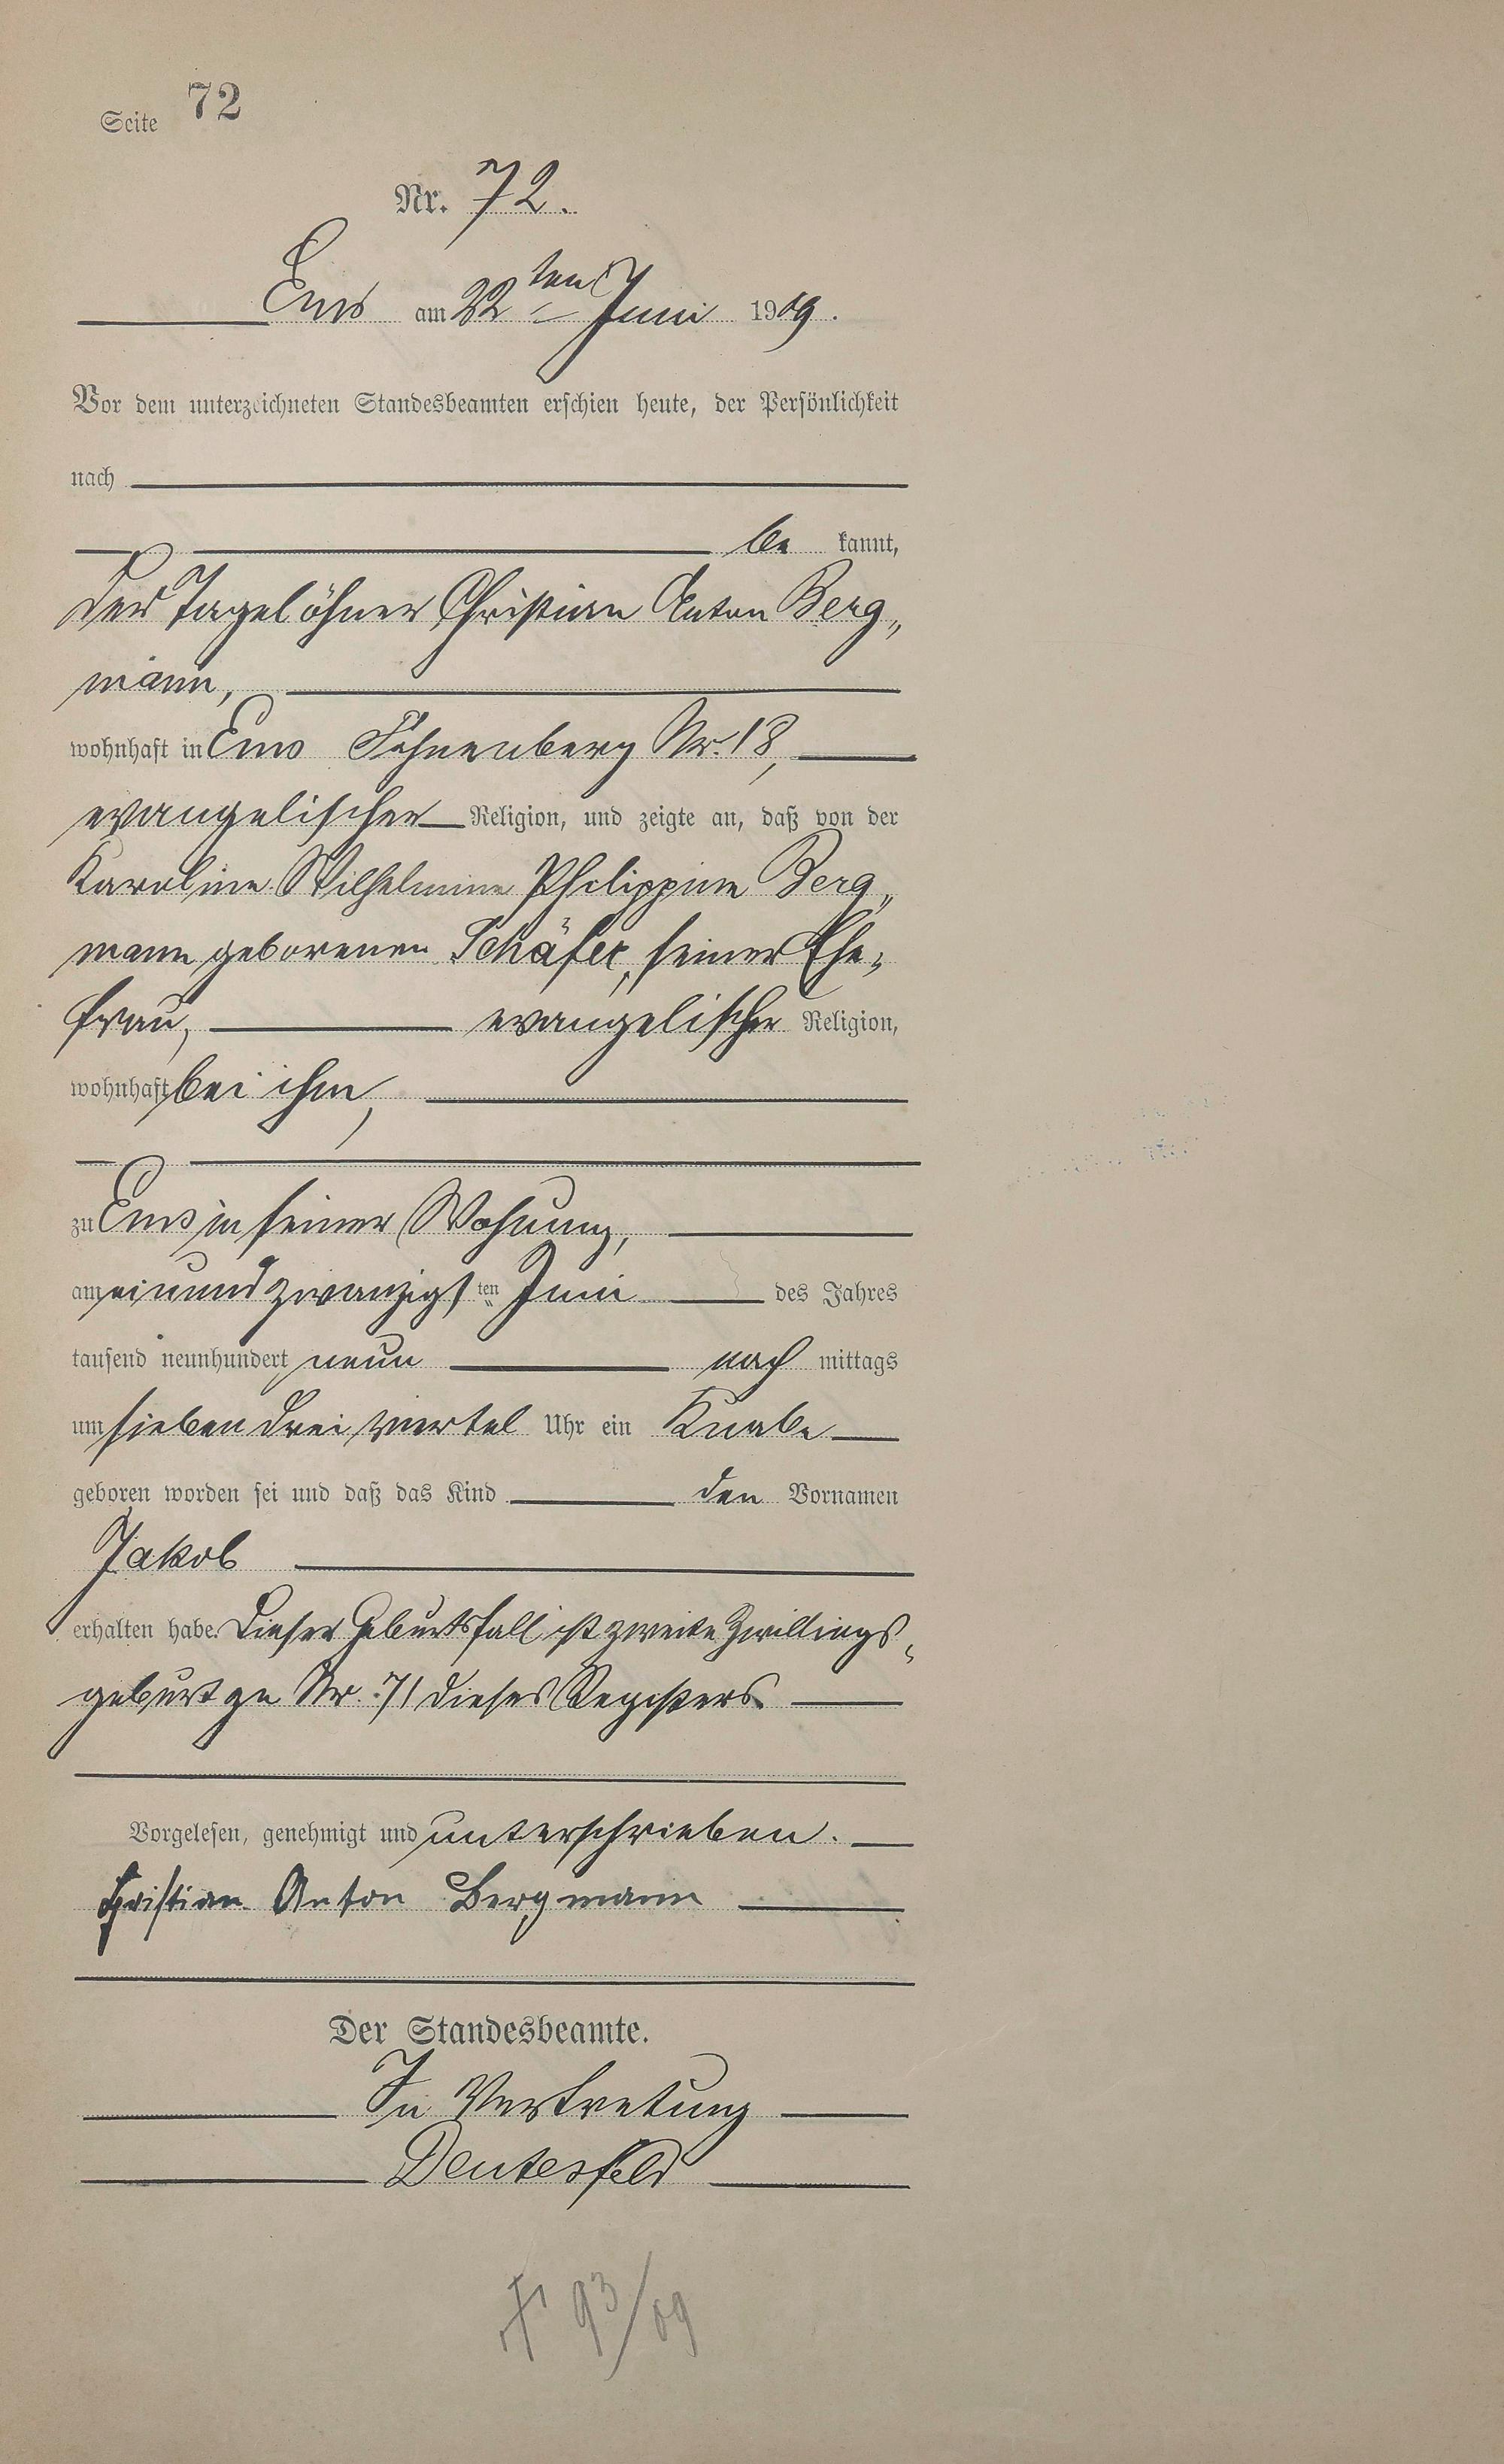 Seite 72
Nr. 72.
Ems am 22ten Juni 1909.
Vor dem unterzeichneten Standesbeamten erschien heute, der Persönlichkeit
nach
be kannt,
der Tagelöhner Christian Anton Berg„
mann,
wohnhaft in Ems Nr. 18,
evangelischer Religion, und zeigte an, daß von der
Karoline Wilhelmine Philippine Berg„
mann geborenen Schäfer, seiner Ehe„
frau, evangelischer Religion,
wohnhaft bei ihm,
zu Ems in seiner Wohnung,
am einundzwanzigsten Juni des Jahres
tausend neunhundert neun nach mittags
um sieben dreiviertel Uhr ein Knabe
geboren worden sei und daß das Kind den Vornamen
Jakob
erhalten habe. Dieser Geburtsfall ist zweite Zwillings„
geburt zu Nr. 71 dieses Registers.
Vorgelesen, genehmigt und unterschrieben.
Christian Anton Bergmann
Der Standesbeamte.
In Vertretung
Deutesfeld
93/09